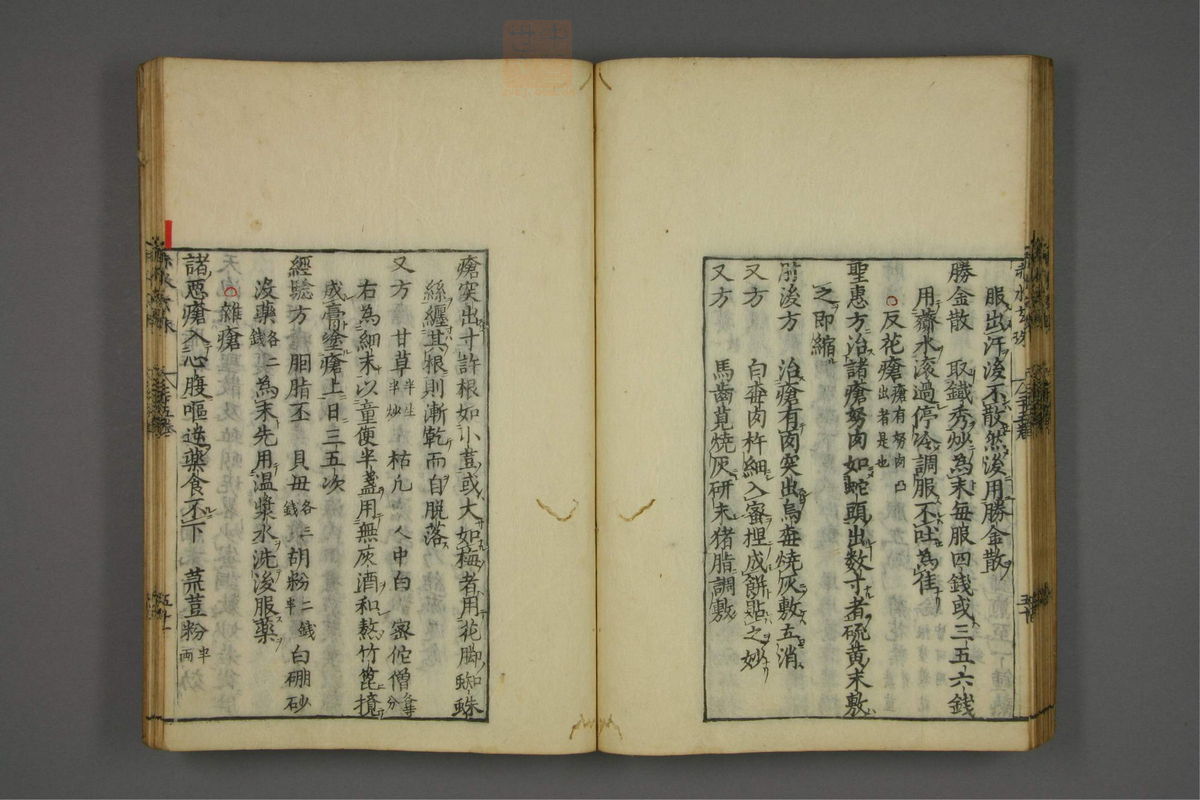 服出汗後不散然後用勝金散
勝金散 取鐵秀炒為末每服四錢或三五六錢
用虀水滾過停冷調服不吐為隹
○反花瘡 瘡有努肉凸出者是也
聖惠方治諸瘡努肉如蛇頭出数寸者硫黄末敷
之即縮
前後方 治瘡有肉突出烏梅燒灰敷立消
又方 白梅肉杵細入蜜捏成餅貼之妙
又方 馬齒莧燒灰研末猪脂調敷
瘡突出寸許根如小荳或大如梅者用花脚蜘蛛
絲纏其根則漸乾而自脱落
又方 甘草半生半炒 枯凡 人中白 密佗僧各等分
右為細末以童便半盞用無灰酒和熬竹篦攪
成膏塗瘡上日三五次
經驗方 胭脂坯 貝母各三錢 胡粉二錢半 白硼砂
没藥各二錢 為末先用温漿水洗後服藥
○雜瘡
諸惡瘡入心腹嘔逆藥食不下 菉荳粉半両